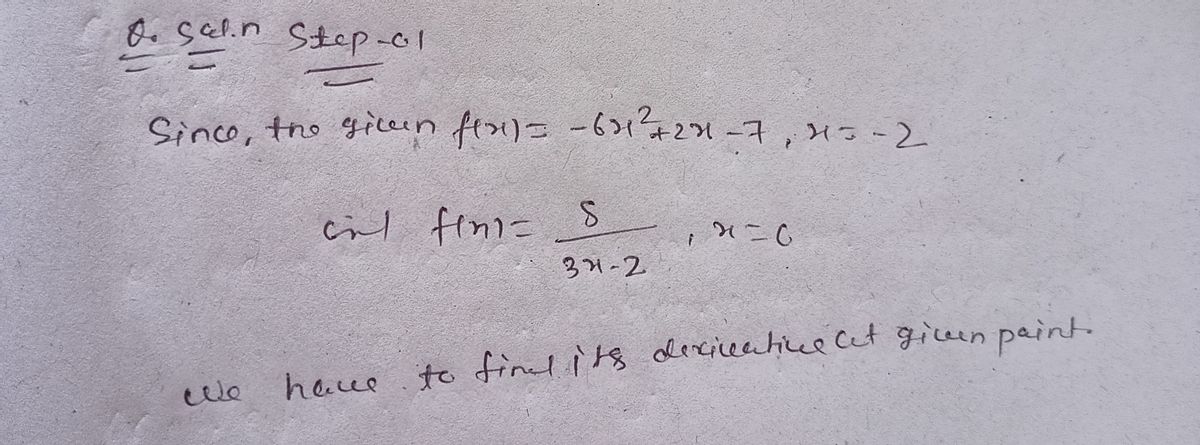 Q. Sol.n Step-01
Since, the given f(x) = -6x²+2x-7, x = -2
f(x) = 8/(3x-2), x=0
We have to find its derivative at given point.